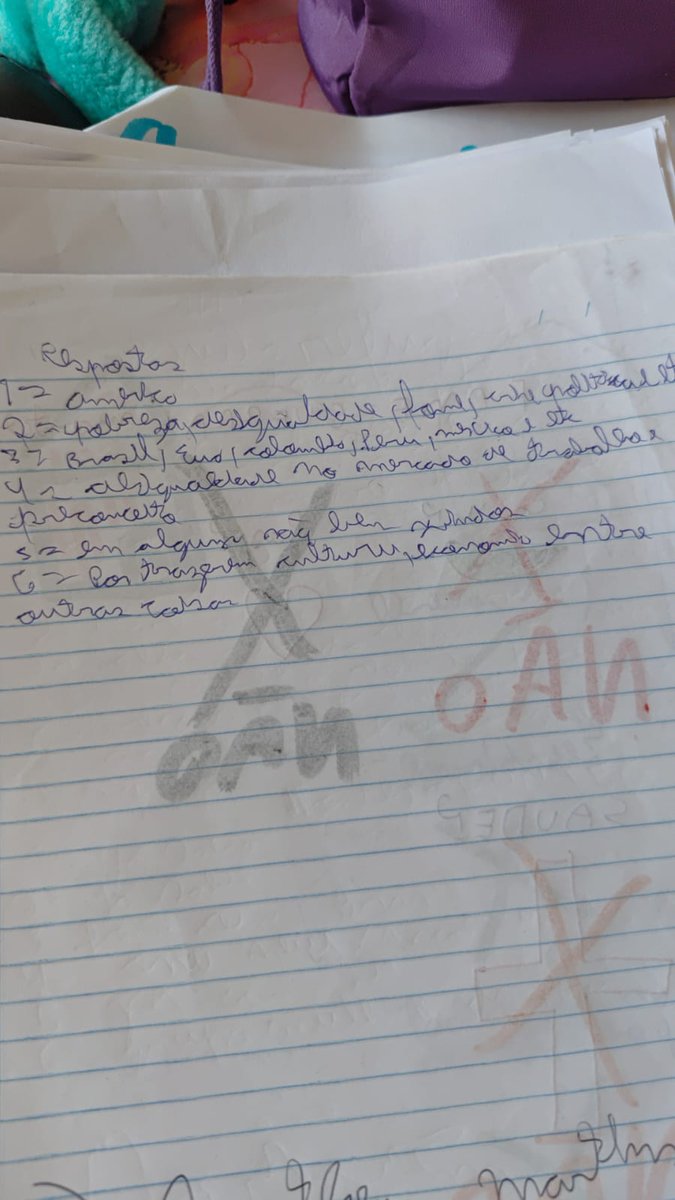 Respostas
1= América
2= pobreza, desigualdade, fome, crise política et
3= Brasil, Eua, Colombia, Peru, México e etc
4= desigualdade no mercado de trabalho e
preconceito
5= em alguns são bem vindos
6= Por trazerem cultura, economia entre
outras coisas
NÃO
NÃO
SAUDE